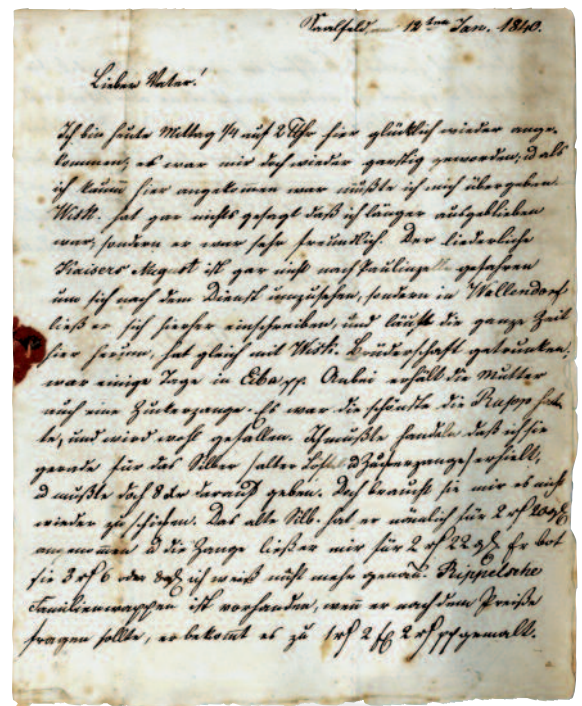 Saalfeld, am 12ten Jan. 1840.
Lieber Vater!
Ich bin heute Mittag 1/4 auf 2 Uhr hier glücklich wieder ange-
kommen; es war mir doch wieder garstig geworden, d als
ich kaum hier angekommen war mußte ich mich übergeben.
Witk. hat gar nichts gesagt daß ich länger ausgeblieben
war, sondern er war sehr freundlich. Der liederliche
Kaisers August ist gar nicht nach Paulinzelle gefahren
um sich nach dem Dienst umzusehen, sondern in Wellendorf
ließ er sich hierher einschreiben, und läuft die ganze Zeit
hier herum, hat gleich mit Witk. Brüderschaft getrunken,
war einige Tage in Eiba pp. Anbei erhält die Mutter
auch eine Zuckerzange. Es war die schönste die Rupp hat-
te, und wird wohl gefallen. Ich mußte handeln daß ich sie
gerade für das Silber (alter Löffel d Zuckerzange) erhielt,
d mußte doch 8 darauf geben. Doch braucht sie mir es nicht
wieder zu schicken. Das alte Silb. hat er nämlich für 2 rf 20
angenommen d die Zange ließ er mir für 2 rf 22 Er bot
sie 3 rf 6 oder 8 ich weiß nicht mehr genau. Rippelsche
Familienwappen ist vorhanden, wenn er nach dem Preiße
fragen sollte, er bekomt es zu 1 rf 2 2 rf pp gemalt.